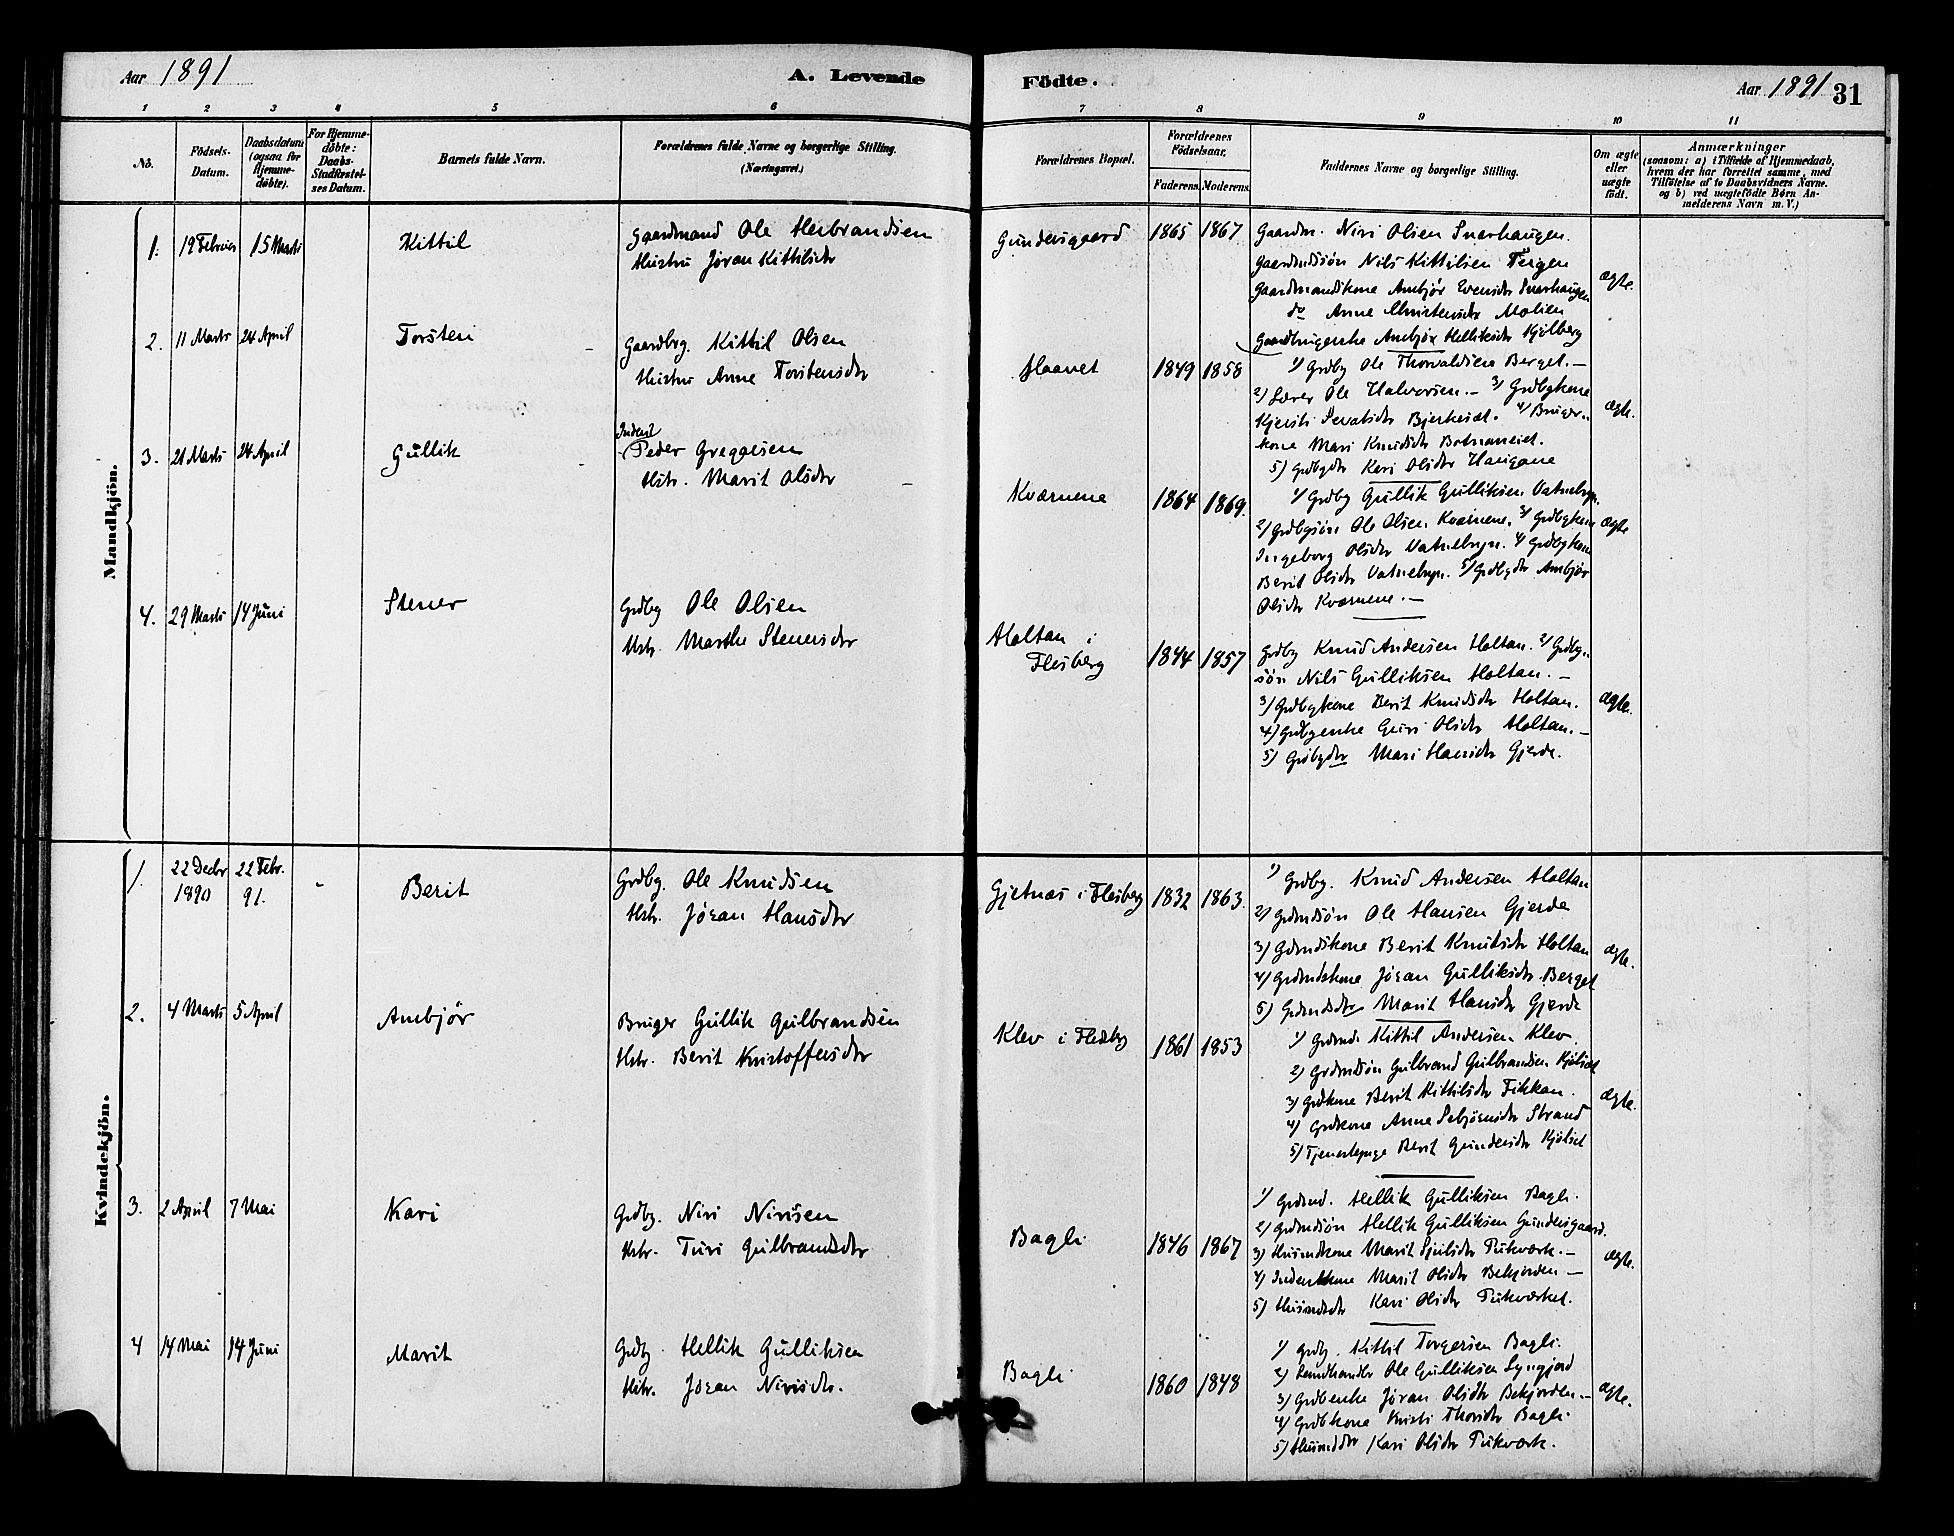 Aar 1891
A. Levende
Födte.
Aar 1891
31
1 2 3 4 5 6 7 8 9 10 11
No.
Födsels-
Datum.
Daabsdatum
(ogsaa for
Hjemme-
døbte).
For Hjemme-
døbte:
Daabs-
Stadfæstel-
ses Datum.
Barnets fulde Navn.
Forældrenes fulde Navne og borgerlige Stilling.
(Næringsvei.)
Forældrenes Bopæl.
Forældrenes
Födselsaar,
Faderens. Moderens.
Faddernes Navne og borgerlige Stilling.
Om ægte
eller
uægte
födt.
Anmærkninger
(saasom: a) i Tilfælde af Hjemmedaab,
hvem der har forrettet samme, med
Tilföielse af to Daabsvidners Navne.
og b) ved uægtefödte Börn An-
melderens Navn m. V.)
Mandkjön.
1. 19 Februar 15 Marts Kittil
Gaardmand Ole Herbrandsen
Hustru Jøran Kittilsdtr
Gundersgaard 1865 1867
Gaardm. Niri Olsen Snarhaugen.
Gaardmdssøn Nils Kittilsen Teigen
Gaardmandskone Ambjør Evensdtr Snarhaugen
do Anne Christensdtr Molien
Gaardbrugerske Ambjør Helliksdtr Kjölberg
ægte.
2. 11 Marts 24 April Torsten
Gaardbrg. Kittil Olsen
Hustru Anne Torstensdtr
Haavet 1849 1858
1) Grdbg Ole Thorvaldsen Berget.-
2) Lærer Ole Halvorsen.- 3) Grdbgkone
Kjersti Sevatsdtr Bjerkeset. 4) Bruger-
kone Mari Knudsdtr Botnaneiet.
5) Grdbgdtr Kari Olsdtr Haugane
ægte.
3. 21 Marts 24 April Gullik
Inderst
Peder Gregarsen
Hstr. Marit Olsdtr
Kværnene 1864 1869.
1) Grdbg Gullik Gulliksen Vatnebryn.
2) Grdbgsøn Ole Olsen Kværnene. 3) Grdbgkone
Ingeborg Olsdtr Vatnebryn. 4) Grdbgkone
Berit Olsdtr Vatnebryn. 5) Grdbgdtr Ambjør
Olsdtr Kværnene.-
ægte
4. 29 Marts 14 Juni Stener
Grdbg Ole Olsen
Hstr. Marthe Stenersdtr
Holtan i
Flesberg 1844 1857
Grdbg Knud Andersen Holtan. 2) Grdbg-
søn Nils Gulliksen Holtan.-
3) Grdbgkone Berit Knudsdtr Holtan.
4) Grdbgenke Guri Olsdtr Holtan.-
5) Grdbgdtr Mari Hansdtr Gjerde.
ægte.
Kvindekjön.
1. 22 Decbr 22 Febr.
1890 91. Berit
Grdbg. Ole Knudsen
Hstr. Jöran Hansdtr
Gjetnæs i Flesberg 1832 1863.
1) Grdbg. Knud Andersen Holtan
2) Grdmdsøn Ole Hansen Gjerde
3) Gdmdskone Berit Knutsdtr Holtan
4) Grdmdskone Jöran Gulliksdtr Berget
5) Grdmdsdtr Marit Hansdtr Gjerde
ægte.
2. 4 Marts 5 April Ambjør
Bruger Gullik Gulbrandsen
Hstr. Berit Kristoffersdtr
Klev i Flesberg 1861 1853
1) Grdmd. Kittil Andersen Klev.
2) Grdmdsøn Gulbrand Gulbrandsen Kjölset
3) Grdkone Berit Kittilsdtr Fikkan.
4) Grdkone Anne Sebjörnsdtr Strand
5) Tjenestepige Berit Gundersdtr Kjölset
ægte.
3. 2 April 7 Mai Kari
Grdbg. Niri Nirisen
Hstr. Turi Gulbrandsdtr
Bagli 1846 1867
1) Grdmd. Hellik Gulliksen Bagli.
2) Grdmdsøn Hellik Gulliksen Gundersgaard.
3) Husmdkone Marit Sjulsdtr Pukværk.-
4) Inderstkone Marit Olsdtr Bekjorden-
5) Husmdsdtr Kari Olsdtr Pukværket.
ægte.
4 14 Mai 14 Juni Marit
Grdbg. Hellik Gulliksen
Hstr. Jöran Nirisdtr.
Bagli 1860 1848
1) Grdbg. Kittil Torgersen Bagli.
2) Landhandler Ole Gulliksen Lyngjord
3) Grdbenke Jöran Olsdtr Bekjorden.-
4) Grdbkone Kristi Thorsdtr Bagli.
5) Husmddtr Kari Olsdtr Pukværk.
ægte.